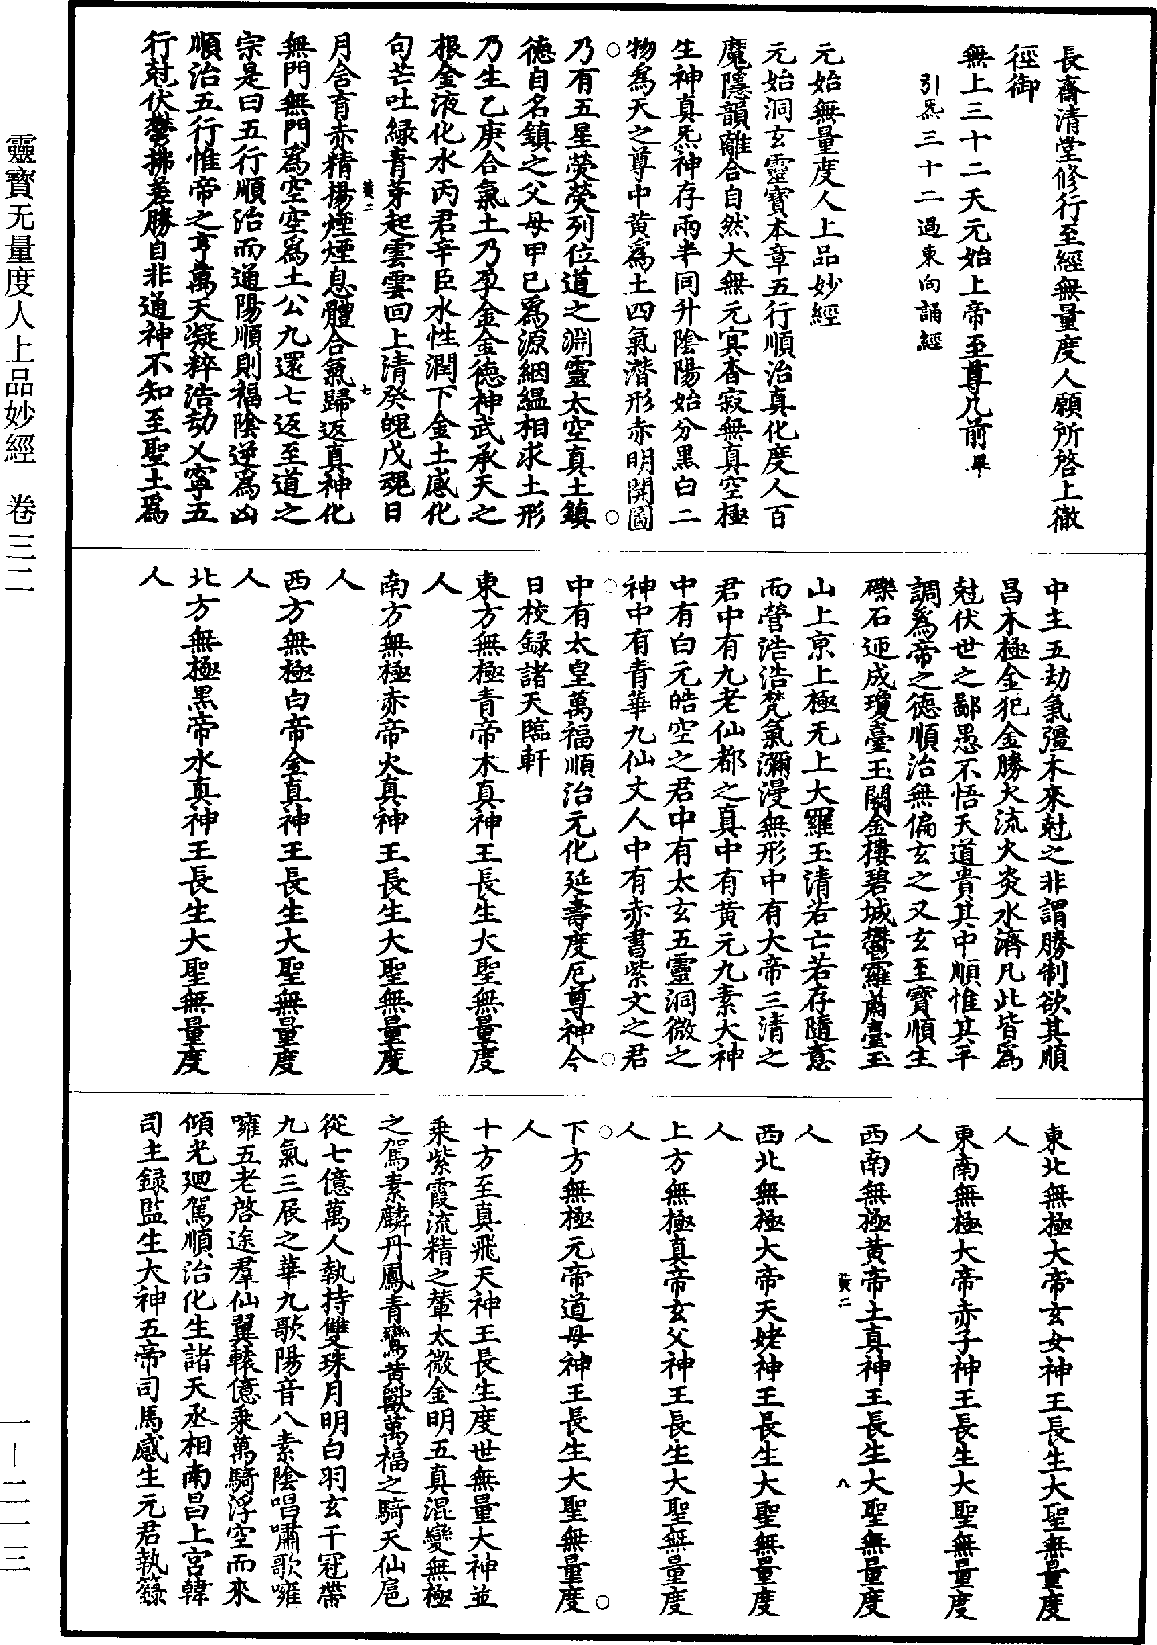 長齋清堂修行至經無量度人願所啓上徹
徑御
無上三十二天元始上帝至尊几前畢
引炁三十二過東向誦經
元始無量度人上品妙經
元始洞玄靈寶本章五行順治真化度人百
魔隱韻離合自然大無元㝠杳寂無真空極
生神真炁神存兩半同升陰陽始分黑白二
物為天之尊中黃為土四氣潛形赤明開圖
乃有五星熒熒列位道之淵靈太空真土鎮
德自名鎮之父母甲己爲源絪緼相求土形
乃生乙庚合氣土乃孕金金德神武承天之
根金液化水丙君辛臣水性潤下金土感化
句芒吐緑青芽起雲雲回上清癸䰟戊魂日
黃二
七
月含育赤精揚煙煙息體合氣歸返真神化
無門無門爲空空爲土公九還七返至道之
宗是曰五行順治而通陽順則福陰逆爲凶
順治五行惟帝之亨萬天凝粹浩劫乂寧五
行尅伏欝拂差勝自非通神不知至聖土爲
中主五劫氣彊木來尅之非謂勝制欲其順
昌木極金犯金勝火流火炎水濟凡此皆爲
尅伏世之鄙愚不悟天道貴其中順惟其平
調爲帝之德順治無偏玄之又玄至寶順生
礫石迊成瓊臺玉闕金樓碧城欝羅蕭臺玉
山上京上極无上大羅玉清若亡若存隨意
而營浩浩梵氣瀰漫無形中有大帝三清之
君中有九老仙都之真中有黃元九素大神
中有白元皓空之君中有太玄五靈洞微之
神中有青華九仙丈人中有赤書紫文之君
中有太皇萬福順治元化延壽度厄尊神今
日校録諸天臨軒
東方無極青帝木真神王長生大聖無量度
人
南方無極赤帝火真神王長生大聖無量度
人
西方無極白帝金真神王長生大聖無量度
人
北方無極黑帝水真神王長生大聖無量度
人
東北無極大帝玄女神王長生大聖無量度
人
東南無極大帝赤子神王長生大聖無量度
人
西南無極黃帝土真神王長生大聖無量度
黃二
八
人
西北無極大帝天姥神王長生大聖無量度
人
上方無極真帝玄父神王長生大聖無量度
人
下方無極元帝道母神王長生大聖無量度
人
十方至真飛天神王長生度世無量大神並
乘紫霞流精之輦太微金明五真混變無極
之駕素麟丹鳳青鸞黃獸萬福之騎天仙扈
從七億萬人執持雙珠月明白羽玄千冠帶
九氣三辰之華九歌陽音八素陰唱嘯歌嗈
嗈五老啓途羣仙翼轅億乘萬騎浮空而來
傾光廻駕順治化生諸天丞相南昌上宮韓
司主録監生大神五帝司馬感生元君執籙
靈寶无量度人上品妙經　卷三二
一—二一三